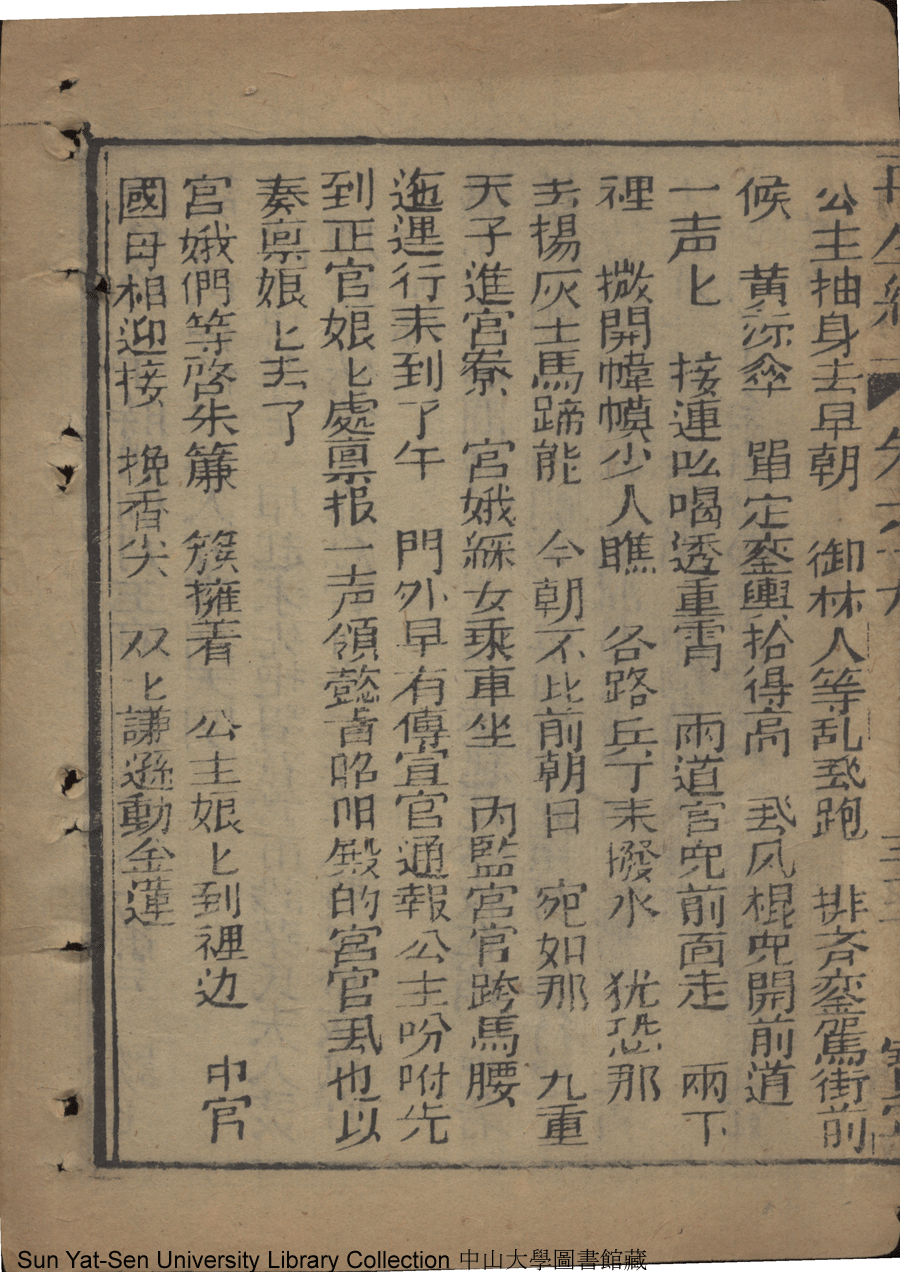 公主抽身去早朝　御林人等乱𠫵跑　排斉銮駕街前
候　黄凉傘　單定銮輿抬得高　𠫵风棍児開前道
一声ヒ　接連吆喝透重霄　兩道官児前面走　兩下
裡　微開幃幙少人瞧　各路兵丁来撥水　犹恐那
去揚灰土馬蹄能　今朝不比前朝日　宛如那　九重
天子進宮寮　宮娥綵女乘車坐　內監宮官跨馬腰
迤逦行来到了午　門外早有傳宣官通報公主吩咐先
到正宮娘ヒ處禀报一声領懿旨昭阳殿的宮官也以
奏禀娘ヒ去了
宮娥們等啓朱簾　簇擁着　公主娘ヒ到裡边　中宮
國母相迎接　挽香尖　双ヒ謙遜動金蓮
Sun Yat-Sen University Library Collection 中山大學圖書館藏